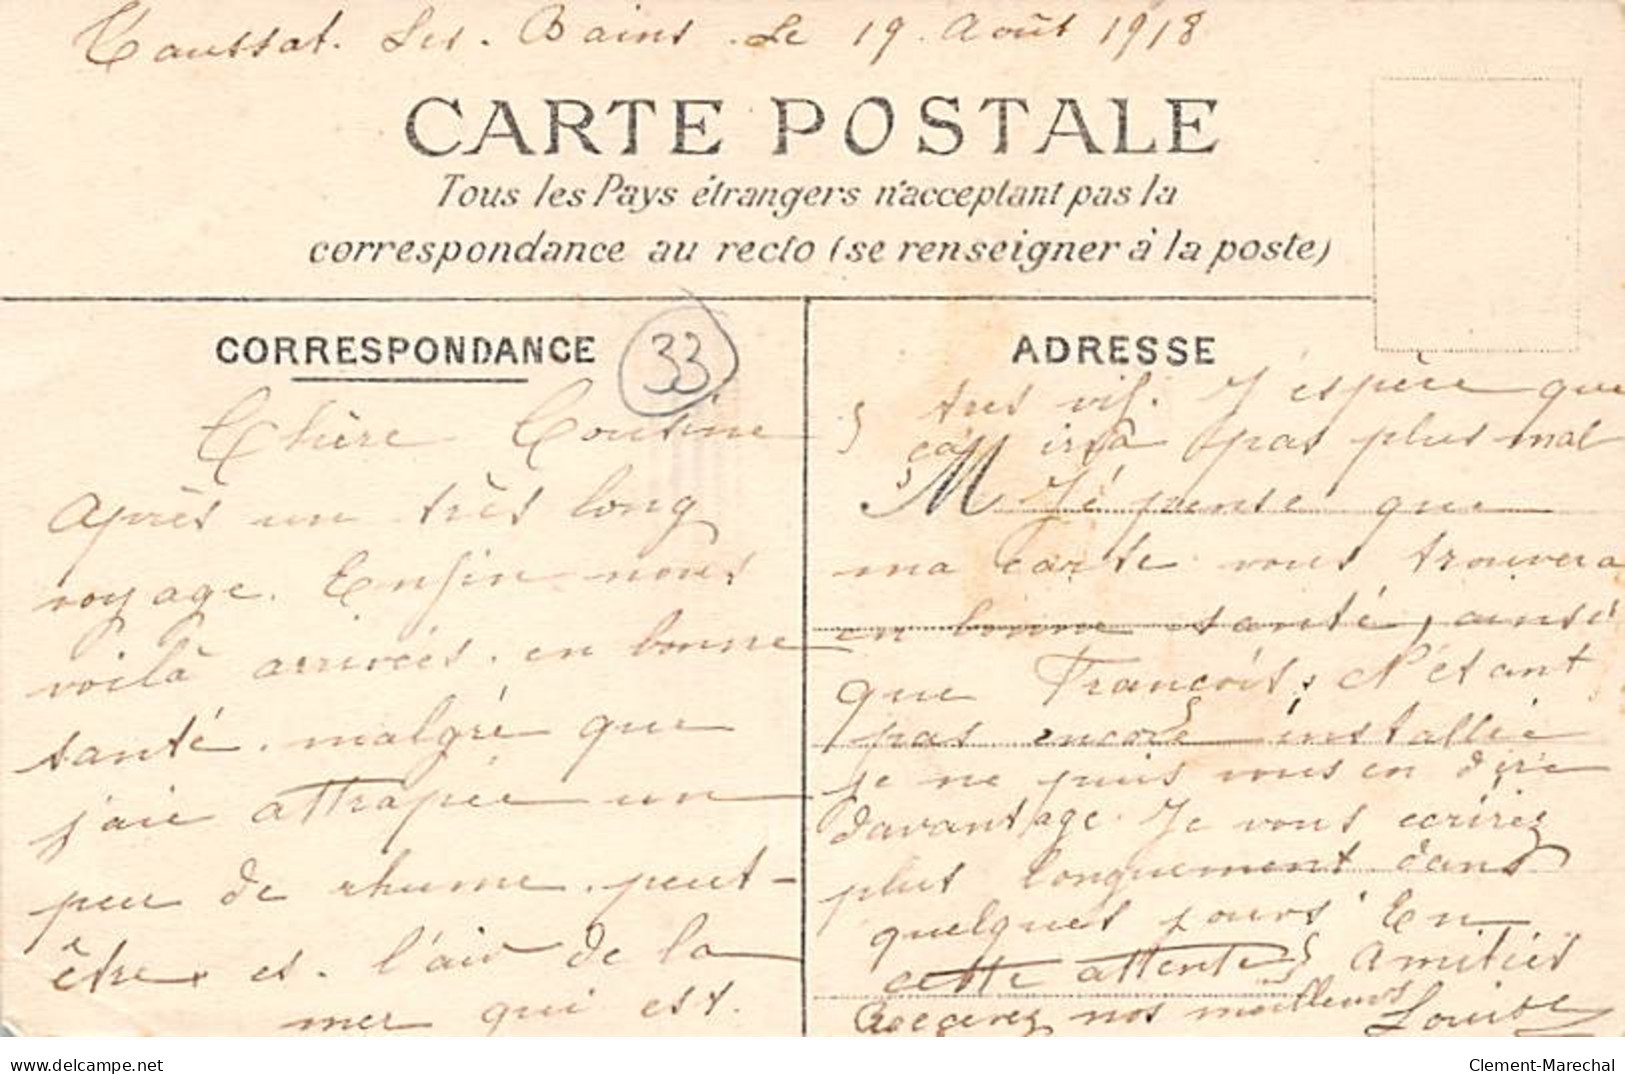 Taussat. Les. Bains. Le 19. Août 1918
CARTE POSTALE
Tous les Pays étrangers n'acceptant pas la
correspondance au recto (se renseigner à la poste)
CORRESPONDANCE
33
Chère Cousine
Après un très long
voyage. Enfin nous
voilà arrivées. en bonne
santé. malgré que
j'aie attrapée un
peu de rhume. peut-
être. es. l'air de la
mer qui est.
ADRESSE
tres vif. J'espère que
ça irra pas plus mal
M Jé pense que
ma carte vous trouvera
en bonne santé, ainsi
que François. N'étant
pas encore installée
je ne puis vous en dire
davantage. Je vous ecrirez
plus longuement dans
quelques jours. En
cette attente Amitiés
Recevez nos meilleurs
Louise
delcampe.net
Clement-Marechal